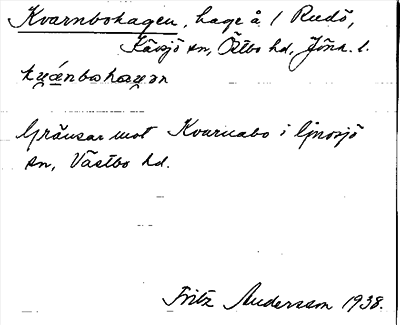 Kvarnbohagen, hage å 1 Rudö,
Kävsjö sn, Östbo hd, Jönk. l.
Gränsar mot Kvarnabo i Gnosjö
sn, Västbo hd.
Fritz Andersson 1938.